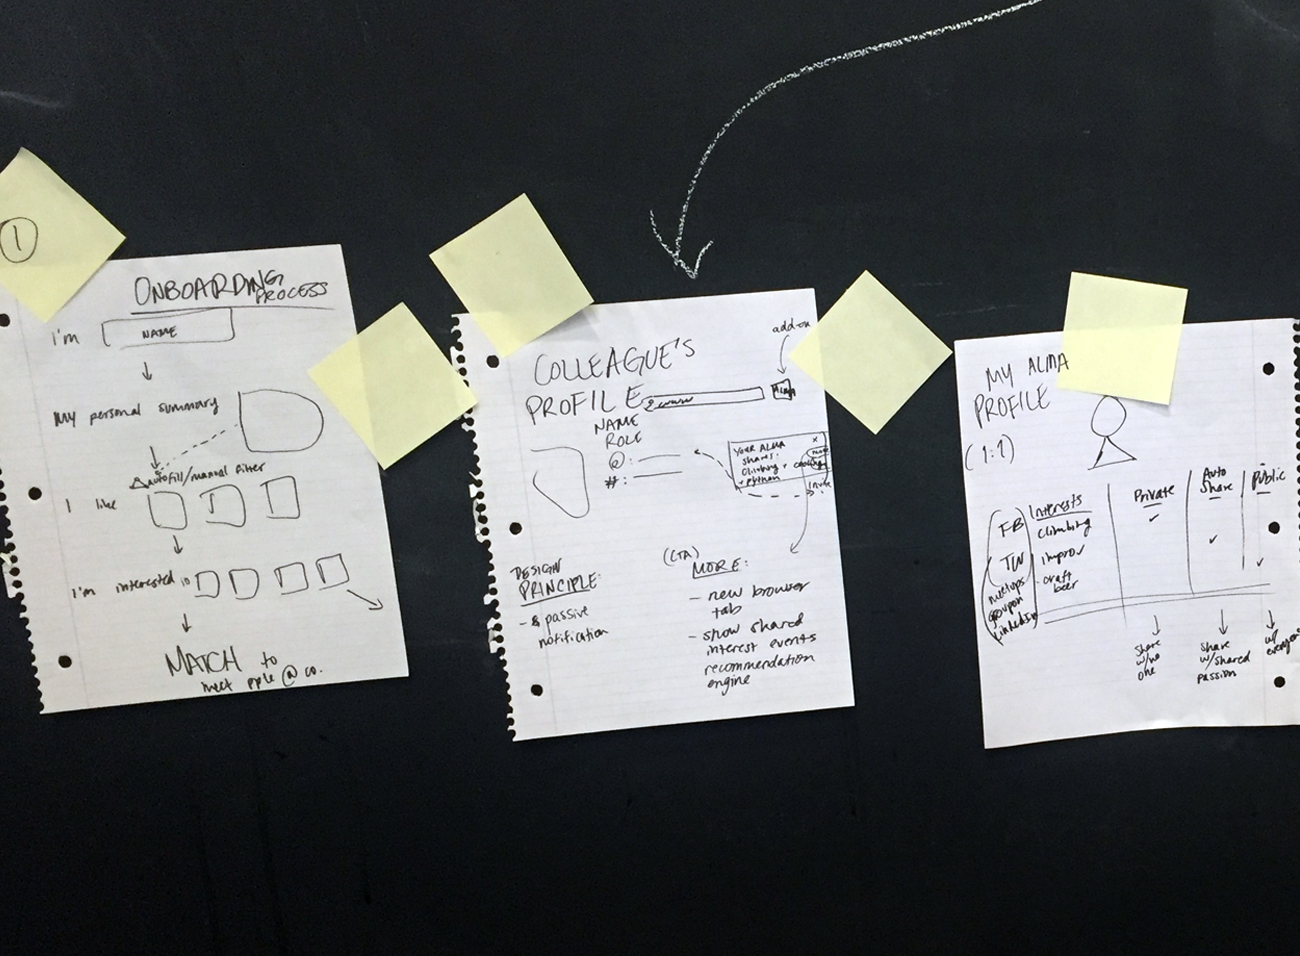 1
ONBOARDING
PROCESS
I'm NAME
My personal summary
autofill/manual filter
I like
I'm interested in
MATCH to
meet pple @ co.
add-on
COLLEAGUE'S
PROFILE
www
ALMA
NAME
ROLE
@:
#:
YOUR ALMA x
shares:
climbing +
+ python
DESIGN
PRINCIPLE:
- passive
notification
(CTA)
MORE:
- new browser
tab
- show shared
interest events
recommendation
engine
MY ALMA
PROFILE
(1:1)
Interests Private Auto Share Public
FB climbing ✓
TW improv ✓
meetups craft beer ✓
groupon
LinkedIn
share
w/no
one
share
w/shared
passion
w/
everyone